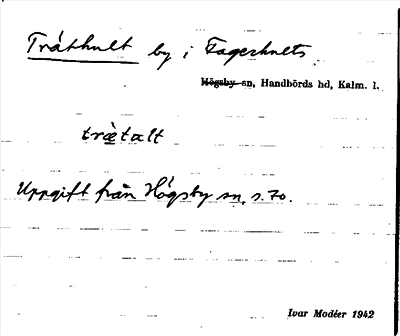 Tråthult by i Fagerhults
Högsby sn, Handbörds hd, Kalm. l.
trætalt
Uppgift från Högsby sn, s. 70.
Ivar Modéer 1942